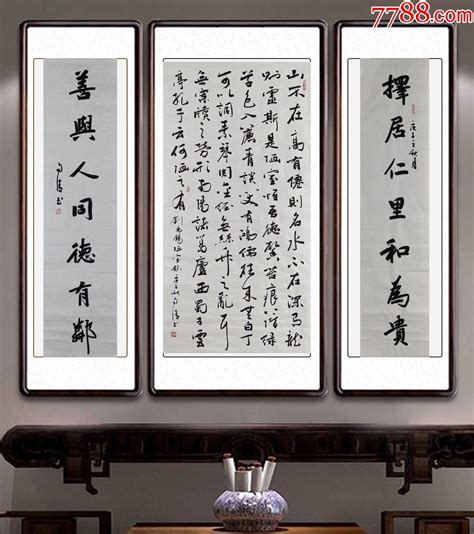 7788.com
擇居仁里和為貴
庚子之秋月
山不在高有僊則名水不在深有龍
則靈斯是陋室惟吾德馨苔痕階綠
草色入簾青談笑有鴻儒往來無白丁
可以調素琴閱金經無絲竹之亂耳
無案牘之勞形南陽諸葛廬西蜀子雲
亭孔子云何陋之有
劉禹錫陋室銘
善與人同德有鄰